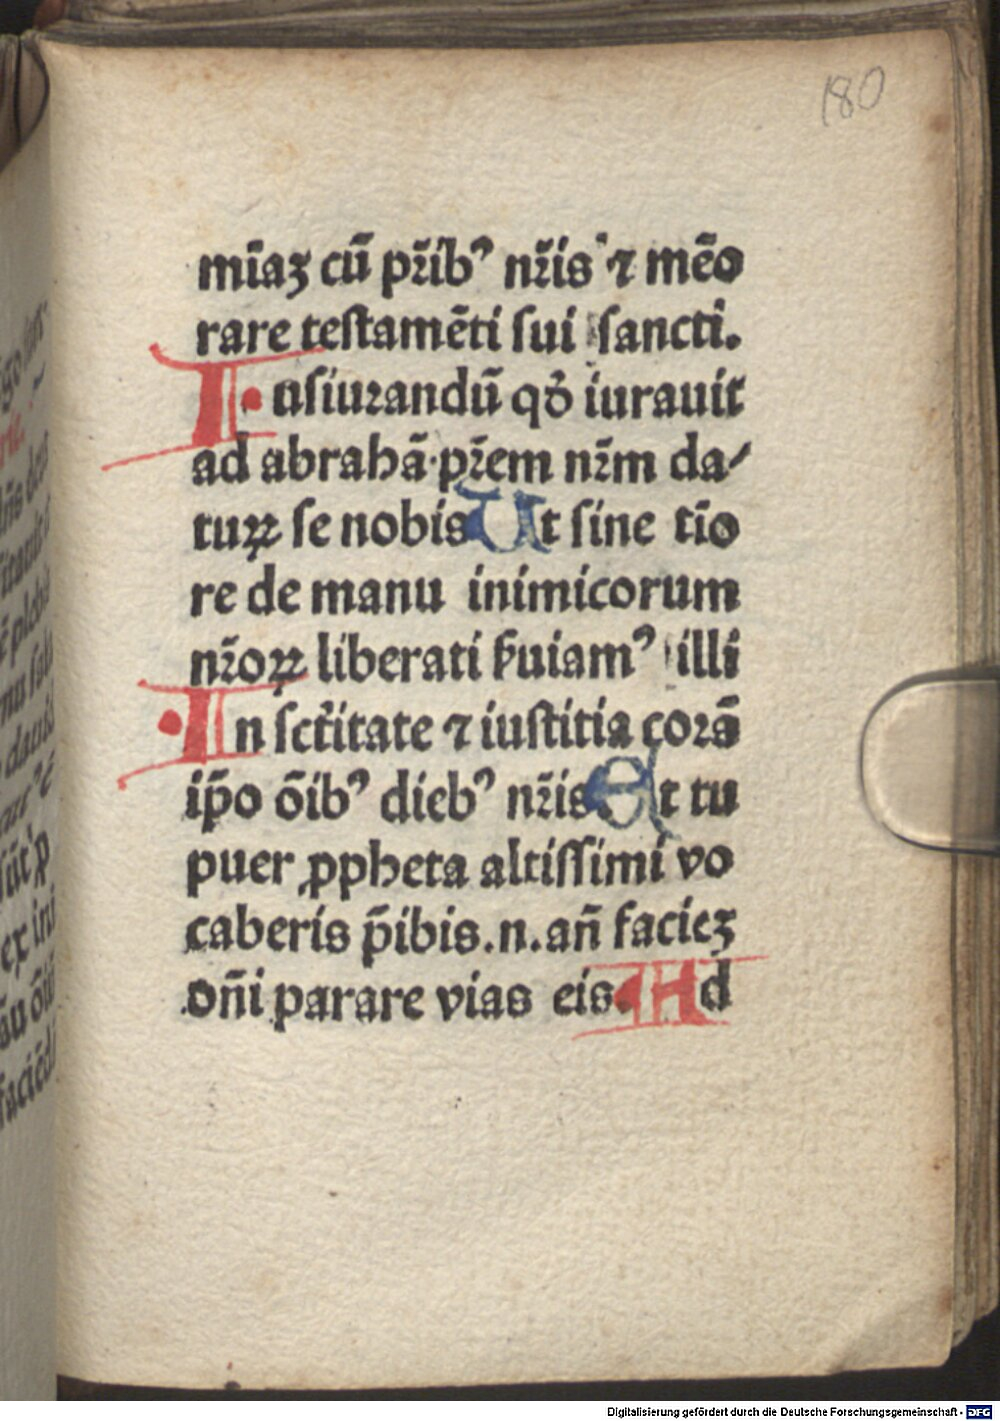 180
mīaʒ cū pr̄ibꝰ nr̄is ⁊ mēo
rare testamēti sui sancti.
I usiurandū qð iurauit
ad abrahā pr̄em nr̄m da⸗
tuꝝ se nobis Ut sine tīo
re de manu inimicorum
nr̄oꝝ liberati ẜuiamꝰ illi
In sct̄itate ⁊ iustitia corā
ip̄o ōibꝰ diebꝰ nr̄is Et tu
puer ꝓpheta altissimi vo
caberis p̄ibis.n.an̄ facieʒ
on̄i parare vias eis. Ad
Digitalisierung gefördert durch die Deutsche Forschungsgemeinschaft - DFG